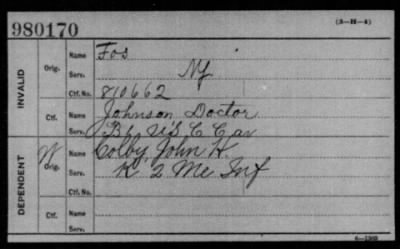 980170
(3—H—4)
INVALID
Orig.
Name Fos
Serv. NY
Ctf. No. 810662
Ctf.
Name Johnson Doctor
Serv. B 6 U S C C av
DEPENDENT
W Orig.
Name Colby, John H.
Serv. K 2 Me Inf
Ctf. No.
Ctf.
Name
Serv.